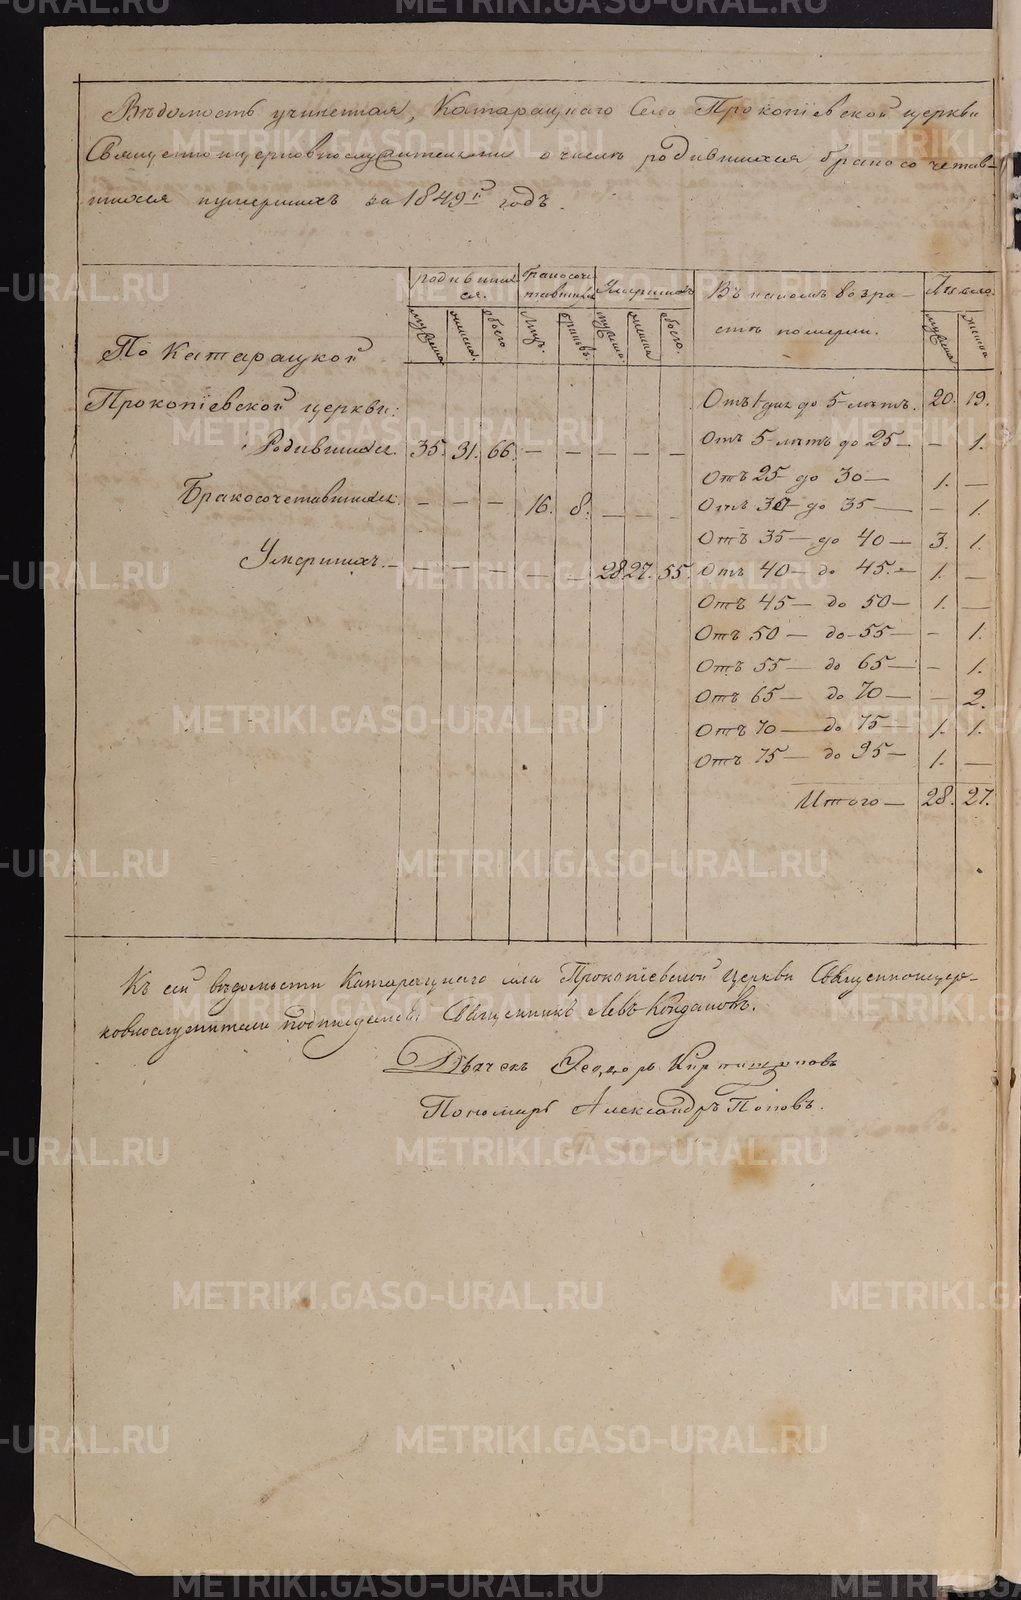 Вѣдомость учиненная, Катарацкаго Села Прокопіевской церкви
Священноцерковнослужителями о числѣ родившихся бракосочетав-
шихся и умершихъ за 1849й годъ.
родивших
ся.
бракосоче
тавшихся
Умершихъ
Въ какомъ возра-
стѣ померли.
Число
мужеска
женска
обоего
Лицъ.
браковъ.
мужеска
женска
обоего.
мужска
женска
По Катарацкой
Прокопіевской церкви:
Родившихся. 35. 31. 66. — — — — —
Бракосочетавшихся. — — — 16. 8. — — —
Умершихъ. — — — — — 28. 27. 55.
Отъ 1 дня до 5 лѣтъ. 20. 19.
Отъ 5 лѣтъ до 25 — — 1.
Отъ 25 до 30 — 1. —
Отъ 30 — до 35 — — 1.
Отъ 35 — до 40 — 3. 1.
Отъ 40 — до 45. — 1. —
Отъ 45 — до 50 — 1. —
Отъ 50 — до 55 — — 1.
Отъ 55 — до 65 — — 1.
Отъ 65 — до 70 — — 2.
Отъ 70 — до 75 — 1. 1.
Отъ 75 — до 95 — 1. —
Итого — 28. 27.
Къ сей вѣдомости Катарацкаго села Прокопіевской Церкви Священноцер-
ковнослужители подписуемся. Священникъ Левъ
Дьячекъ Ѳеодоръ
Пономарь Александръ Поповъ.
METRIKI.GASO-URAL.RU